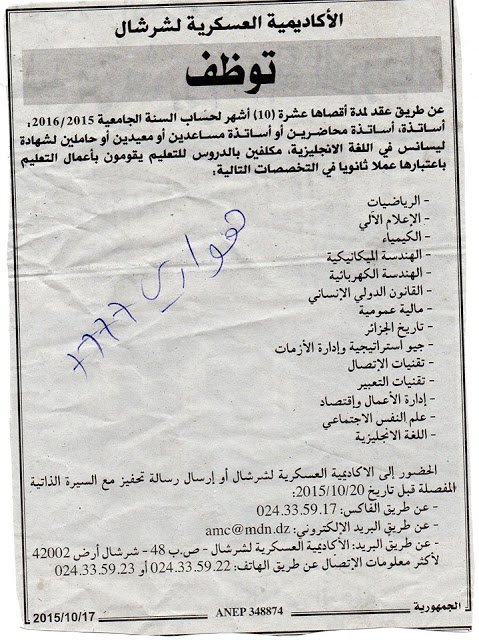 الأكاديمية العسكرية لشرشال
توظف
عن طريق عقد لمدة أقصاها عشرة (10) أشهر لحساب السنة الجامعية 2016/2015:
أساتذة، أساتذة محاضرين أو أساتذة مساعدين أو معيدين أو حاملين لشهادة
ليسانس في اللغة الانجليزية، مكلفين بالدروس للتعليم يقومون بأعمال التعليم
باعتبارها عملا ثانويا في التخصصات التالية:
- الرياضيات
- الإعلام الآلي
- الكيمياء
- الهندسة الميكانيكية
- الهندسة الكهربائية
- القانون الدولي الإنساني
- مالية عمومية
- تاريخ الجزائر
- جيو استراتيجية وإدارة الأزمات
- تقنيات الإتصال
- تقنيات التعبير
- إدارة الأعمال وإقتصاد
- علم النفس الاجتماعي
- اللغة الانجليزية
هواري
الحضور إلى الاكاديمية العسكرية لشرشال أو إرسال رسالة تحفيز مع السيرة الذاتية
المفصلة قبل تاريخ 2015/10/20:
- عن طريق الفاكس: 024.33.59.17
- عن طريق البريد الإلكتروني: amc@mdn.dz
- عن طريق البريد: الأكاديمية العسكرية لشرشال - ص.ب 48 - شرشال أرض 42002
لأكثر معلومات الإتصال عن طريق الهاتف: 024.33.59.22 أو 024.33.59.23
الجمهورية
ANEP 348874
2015/10/17